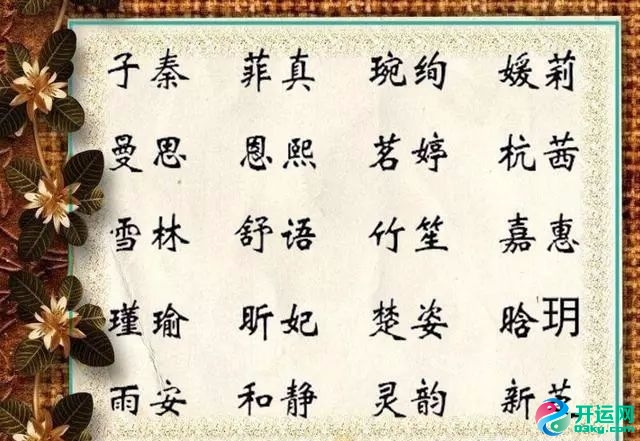 子秦 菲真 琬绚 媛莉
曼思 恩熙 茗婷 杭茜
雪林 舒语 竹笙 嘉惠
瑾瑜 昕妃 楚姿 晗玥
雨安 和静 灵韵 新
开运网